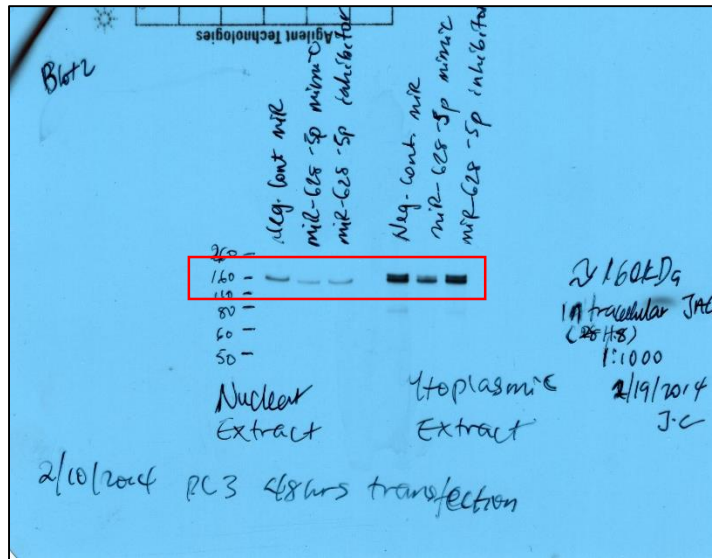 Agilent Technologies
Blot 2
Neg. Cont miR
miR-628-5p mimic
miR-628-5p inhibitor
Neg. Cont miR
miR-628-5p mimic
miR-628-5p inhibitor
260 -
160 -
110 -
80 -
60 -
50 -
~160kDa
Intracellular JAG
(28H8)
1:1000
2/19/2014
J.C
Nuclear
Extract
ytoplasmic
Extract
2/10/2014 PC3 48hrs transfection